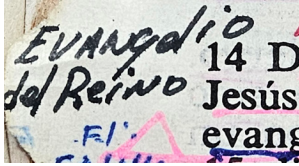 EVANgelio
del Reino
14 D
Jesús
evang
El